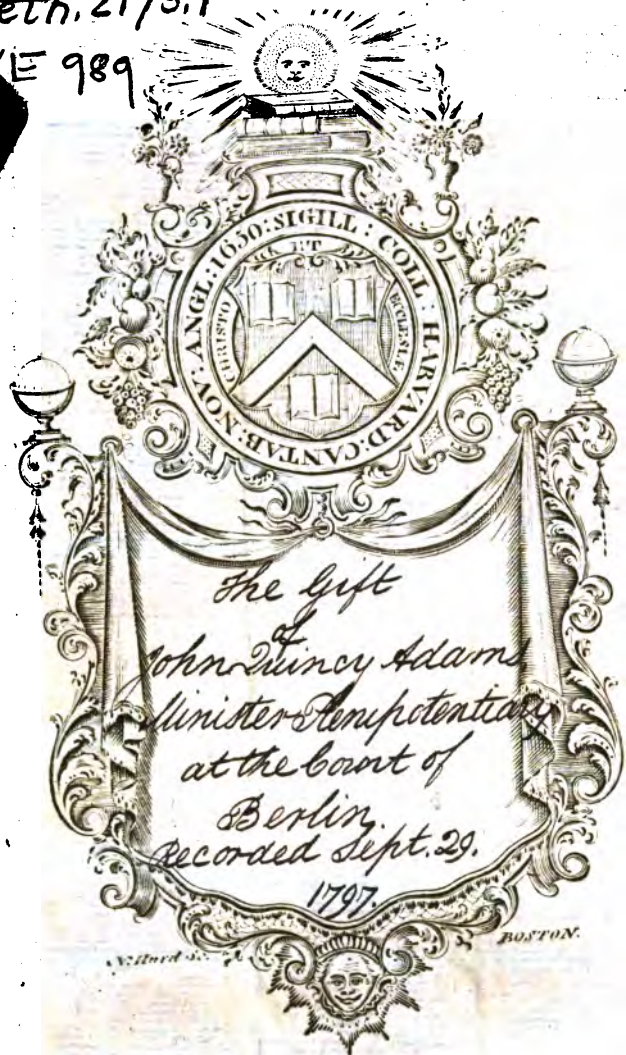 eth. 2173.1
E 989
SIGILL : COLL : HARVARD : CANTAB : NOV : ANGL : 1650 :
ET
CHRISTO
ECCLESIÆ
The Gift
of
John Quincy Adams
Minister Plenipotentiary
at the Court of
Berlin.
Recorded Sept. 29.
1797.
N. Hurd Sc.
BOSTON.